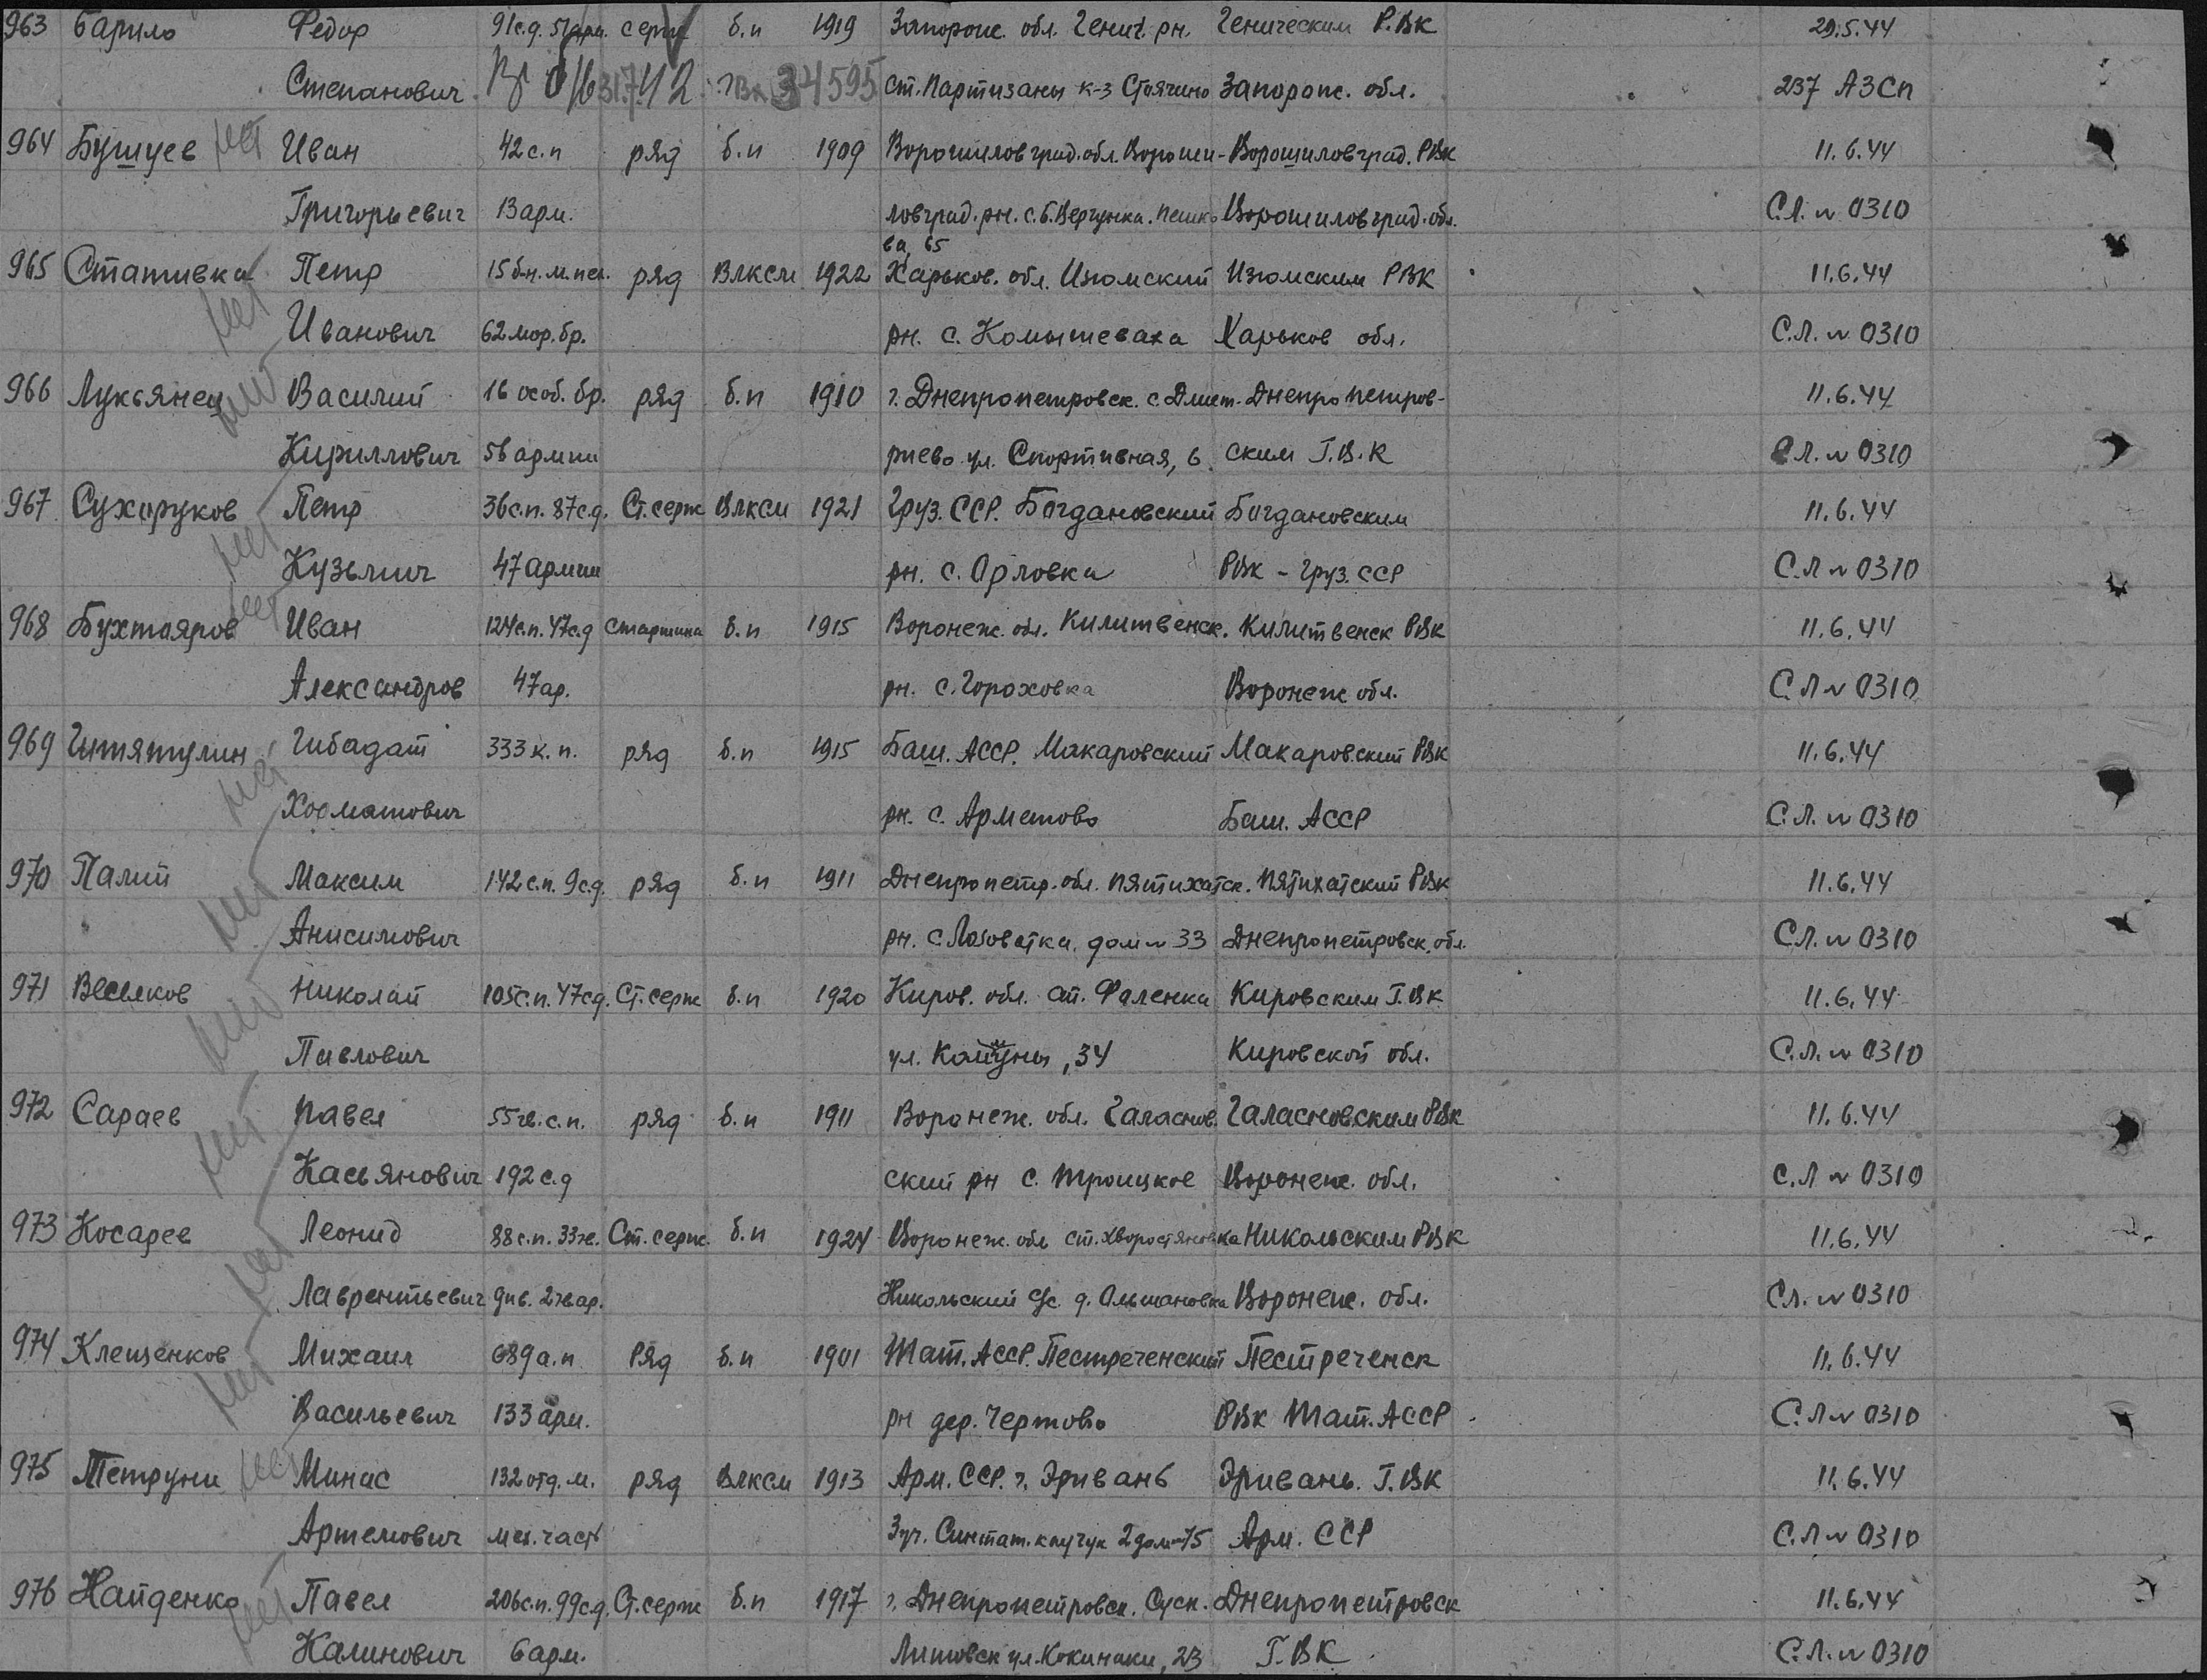 963 Барило Федор 91с.д. 51арм. серж б.п 1919 Запорож. обл. Генич. рн. Геническим Р.ВК 29.5.44
Степанович 34595 ст. Партизаны к-з Запорож. обл. 237 АЗСП
964 Бушуев нет Иван 42 с.п ряд б.п 1909 Ворошиловград. обл. Вороши- Ворошиловград. РВК 11.6.44
Григорьевич 13 арм. ловград. рн. с. Б. Вергунка. Пешко Ворошиловград. обл. С.Л. № 0310
ва, 65
965 Стативка Петр 15 б-н. м. пех. ряд ВЛКСМ 1922 Харьков. обл. Изюмский Изюмским РВК 11.6.44
нет Иванович 62 мор. бр. рн. с. Комышеваха Харьков обл. С.Л. № 0310
966 Лукьянец нет Василий 16 особ. бр. ряд б.п 1910 г. Днепропетровск. с. Дмит- Днепропетров- 11.6.44
Кириллович 56 армии риево ул. Спортивная, 6. ским Г.В.К С.Л. № 0310
967 Сухоруков Петр 36с.п. 87с.д. Ст. серж ВЛКСМ 1921 Груз. ССР. Богдановский Богдановским 11.6.44
нет Кузьмич 47 армии рн. с. Орловка РВК - Груз. ССР С.Л № 0310
968 Бухтояров нет Иван 124с.п. 47с.д старшина б.п 1915 Воронеж. обл. Килитвенск. Килитвенск РВК 11.6.44
Александров 47 ар. рн. с. Гороховка Воронеж обл. С.Л № 0310
969 Гитятулин Гибадат 333 к. п. ряд б.п 1915 Баш. АССР. Макаровский Макаровский РВК 11.6.44
нет Хооматович рн. с. Арметово Баш. АССР С.Л. № 0310
970 Палий Максим 142 с.п. 9с.д. ряд б.п 1911 Днепропетр. обл. Пятихатск. Пятихатский РВК 11.6.44
нет Анисимович рн. с Лозоватка, дом № 33 Днепропетровск. обл. С.Л. № 0310
971 Веселков Николай 105с.п. 47сд. Ст. серж б.п 1920 Киров. обл. ст. Фаленки Кировским Г.ВК 11.6.44
нет Павлович ул. Комуны, 34 Кировской обл. С.Л. № 0310
972 Сараев Павел 55 гв. с.п. ряд б.п 1911 Воронеж. обл. Галаснов. Галасновским РВК 11.6.44
нет Касьянович 192 с.д ский рн с. Троицкое Воронеж. обл. С.Л № 0310
973 Косарев Леонид 88 с.п. 33 гв. Ст. серж. б.п 1924 Воронеж. обл ст. Хворостяновка Никольским РВК 11.6.44
нет Лаврентьевич див. 2 гв ар. Никольский с/с. д. Ольшановка Воронеж. обл. С.Л. № 0310
974 Клещенков Михаил 689 а.п ряд б.п 1901 Тат. АССР. Пестреченский Пестреченск 11.6.44
нет Васильевич 133 арм. рн дер. Чертово РВК Тат. АССР С.Л № 0310
975 Петруни Минас 132 отд. м. ряд ВЛКСМ 1913 Арм. ССР. г. Эривань Эривань. Г.ВК 11.6.44
нет Артемович мех. часть 3 уч. Синтат. каучук 2 дом 15 Арм. ССР С.Л № 0310
976 Найденко Павел 206с.п. 99с.д. Ст. серж б.п 1917 г. Днепропетровск. Сухк. Днепропетровск 11.6.44
нет Калинович 6 арм. Литовск ул. Кокинаки, 23 Г.ВК С.Л. № 0310